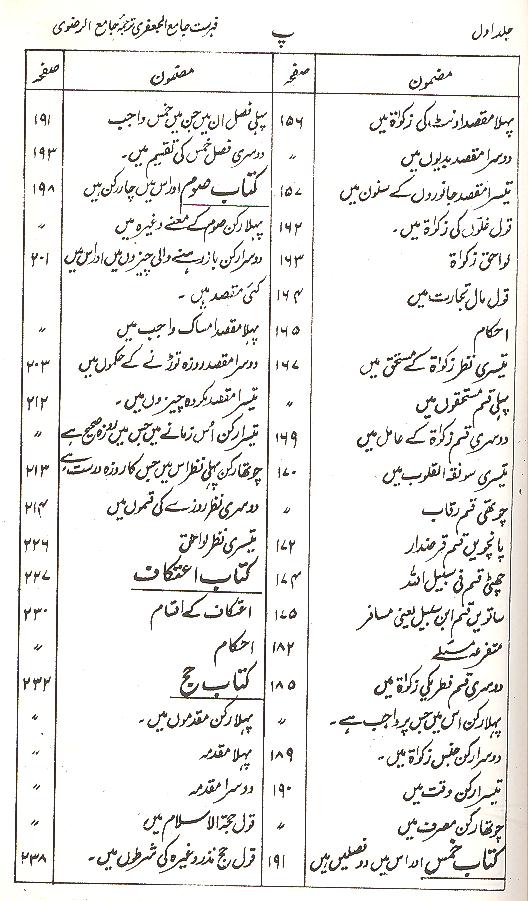 جلد اول
پ
فہرست جامع الجعفری ترجمۂ جامع الرضوی
مضمون صفحہ
پہلا مقصد اونٹ کی زکوٰۃ میں ۱۵۶
دوسرا مقصد بدیوں میں 〃
تیسرا مقصد جانوروں کے سنوں میں ۱۵۷
قول غلّوں کی زکوٰۃ میں۔ ۱۶۲
لواحق زکوٰۃ ۱۶۳
قول مال تجارت میں ۱۶۴
احکام ۱۶۵
تیسری نظر زکوٰۃ کے مستحق میں ۱۶۷
پہلی قسم مستحقوں میں 〃
دوسری قسم زکوٰۃ کے عامل میں ۱۶۹
تیسری مولفۃ القلوب میں ۱۷۰
چوتھی قسم رقاب 〃
پانچویں قسم قرضدار ۱۷۲
چھٹی قسم فی سبیل اللہ ۱۷۴
ساتویں قسم ابن سبیل یعنی مسافر ۱۷۵
متفرعہ مسئلے ۱۸۲
دوسری قسم فطر یکی زکوٰۃ میں ۱۸۵
پہلا رکن اس میں جس پر واجب ہے۔ 〃
دوسرا رکن جنس زکوٰۃ میں۔ ۱۸۹
تیسرا رکن وقت میں ۱۹۰
چوتھا رکن مصرف میں 〃
کتاب خمس اور اس میں دو فصلیں ہیں ۱۹۱
مضمون صفحہ
پہلی فصل ان میں جن میں خمس واجب ۱۹۱
دوسری فصل خمس کی تقسیم میں۔ ۱۹۳
کتاب صوم اور اس میں چار رکن ہیں ۱۹۸
پہلا رکن صوم کے معنے وغیرہ میں 〃
دوسرا رکن باز رہنے والی چیزوں میں اور اس میں ۲۰۱
کئی مقصد ہیں۔
پہلا مقصد امساک واجب میں 〃
دوسرا مقصد روزہ توڑنے کے حکموں میں ۲۰۳
تیسرا مقصد مکروہ چیزوں میں۔ ۲۱۲
تیسرا رکن اُس زمانے میں جس میں روزہ صحیح ہے 〃
چوتھا رکن پہلی نظر اس میں جس کا روزہ درست ہے ۲۱۳
دوسری نظر روزے کی قسموں میں ۲۱۴
تیسری نظر لواحق ۲۲۶
کتاب اعتکاف ۲۲۷
اعتکاف کے اقسام ۲۳۰
احکام 〃
کتاب حج ۲۳۲
پہلا رکن مقدموں میں۔ 〃
پہلا مقدمہ 〃
دوسرا مقدمہ 〃
قول حجۃ الاسلام میں 〃
قول حج نذر وغیرہ کی شرطوں میں۔ ۲۳۸